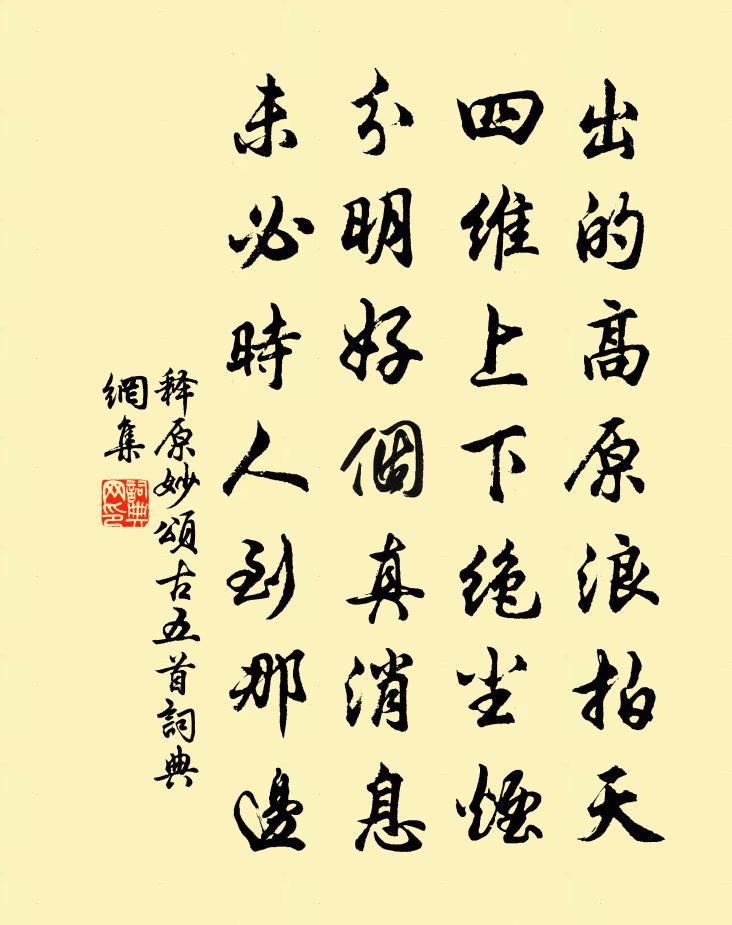 出的高原浪拍天
四维上下绝尘烟
分明好個真消息
未必時人到那邊
释原妙頌古五首詞典
網集
詞典
网印